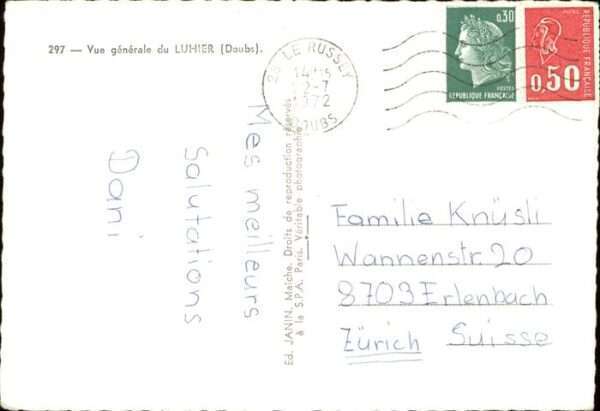 297 — Vue générale du LUHIER (Doubs).
25 LE RUSSEY
14H15
2-7
1972
DOUBS
0,30
POSTES
REPUBLIQUE FRANÇAISE
0,50
REPUBLIQUE FRANÇAISE
Mes meilleurs
Salutations
Dani
Ed. JANIN, Maîche. Droits de reproduction réservés
à la S.P.A. Paris. Véritable photographie
Familie Knüsli
Wannenstr. 20
8703 Erlenbach
Zürich Suisse